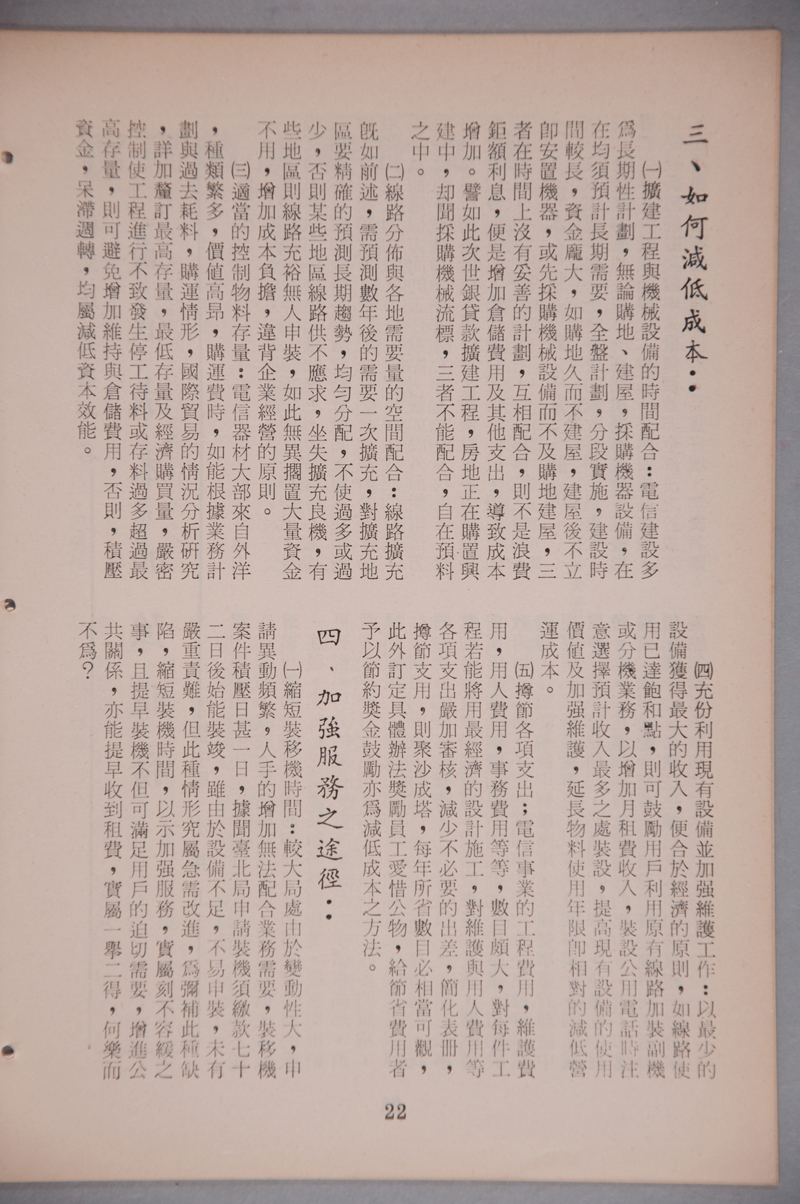 三、如何減低成本：
㈠擴建工程與機械設備的時間配合：電信建設多
爲長期性計劃，無論購地、建屋，採購機器設備，在
在均須預計長期需要，全盤計劃，分段實施，建設時
間較長，資金龐大，如購地久而不建屋，建屋後不立
卽安置機器，或先採購機械設備而不及購地建屋，三
者在時間上沒有妥善的計劃，互相配合，則不是浪費
鉅額利息，便是增加倉儲費用及其他支出，導致成本
增加。譬如此次世銀貸款擴建工程，房地正在購置與
建中，却聞採購機械流標，三者不能配合，自在預料
之中。
㈡線路分佈與各地需要量的空間配合：線路擴充
旣如前述，需預測數年後的需要一次擴充，對擴充地
區要精確的預測長期趨勢，均勻分配，不使過多或過
少，否則某些地區線路供不應求，坐失擴充良機，有
些地區則線路充裕無人申裝，如此無異擱置大量資金
不用，增加成本負擔，違背企業經營的原則。
㈢適當的控制物料存量：電信器材大部來自外洋
，種類繁多，價值高昻，購運費時，如能根據業務計
劃與過去耗料，購運情形，國際貿易的情況分析硏究
，詳加釐訂最高存量，最低存量及經濟購買量，嚴密
控制使工程進行不致發生停工待料或存料過多超過最
高存量，則可避免增加維持與倉儲費用，否則，積壓
資金，呆滯週轉，均屬減低資本效能。
㈣充份利用現有設備並加强維護工作：以最少的
設備獲得最大的收入，便合於經濟的原則，如線路使
用已達飽和點，則可鼓勵用戶利用原有線路加裝副機
或分機業務，以增加月租費收入，裝設公用電話時注
意選擇預計收入最多之處裝設，提高現有設備的使用
價値及加强維護，延長物料使用年限卽相對的減低營
運成本。
㈤撙節各項支出；電信事業的工程費用，維護費
用，用人費用，事務費用等等，數目頗大，對每件工
程若能將用最經濟的設計施工，對維護與用人費用等
各項支出嚴加審核，減少不必要的出差，簡化表冊，
撙節支用，則聚沙成塔，每年所省數目必相當可觀，
此外訂定具體辦法獎勵員工愛惜公物，給節省費用者
予以節約獎金鼓勵亦爲減低成本之方法。
四、加強服務之途徑：
㈠縮短裝移機時間：較大局處由於變動性大，申
請異動頻繁，人手的增加無法配合業務需要，裝移機
案件積壓日甚一日，據聞臺北局申請裝機須繳款七十
二日後始能裝竣，雖由於設備不足，不易申裝，未有
嚴重責難，但此種情形究屬急需改進，爲彌補此種缺
陷，縮短裝機時間，以示加强服務，實屬刻不容緩之
事，且提早裝機不但可滿足用戶的迫切需要，增進公
共關係，亦能提早收到租費，實屬一舉二得，何樂而
不爲？
22